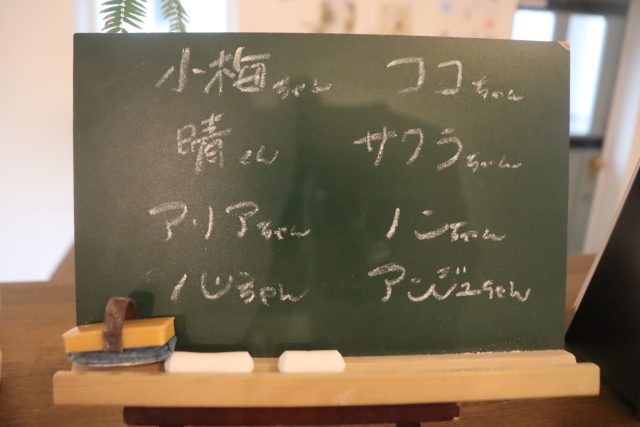 小梅ちゃん ココちゃん
晴くん サクラちゃん
アリアちゃん ノンちゃん
アンジュちゃん